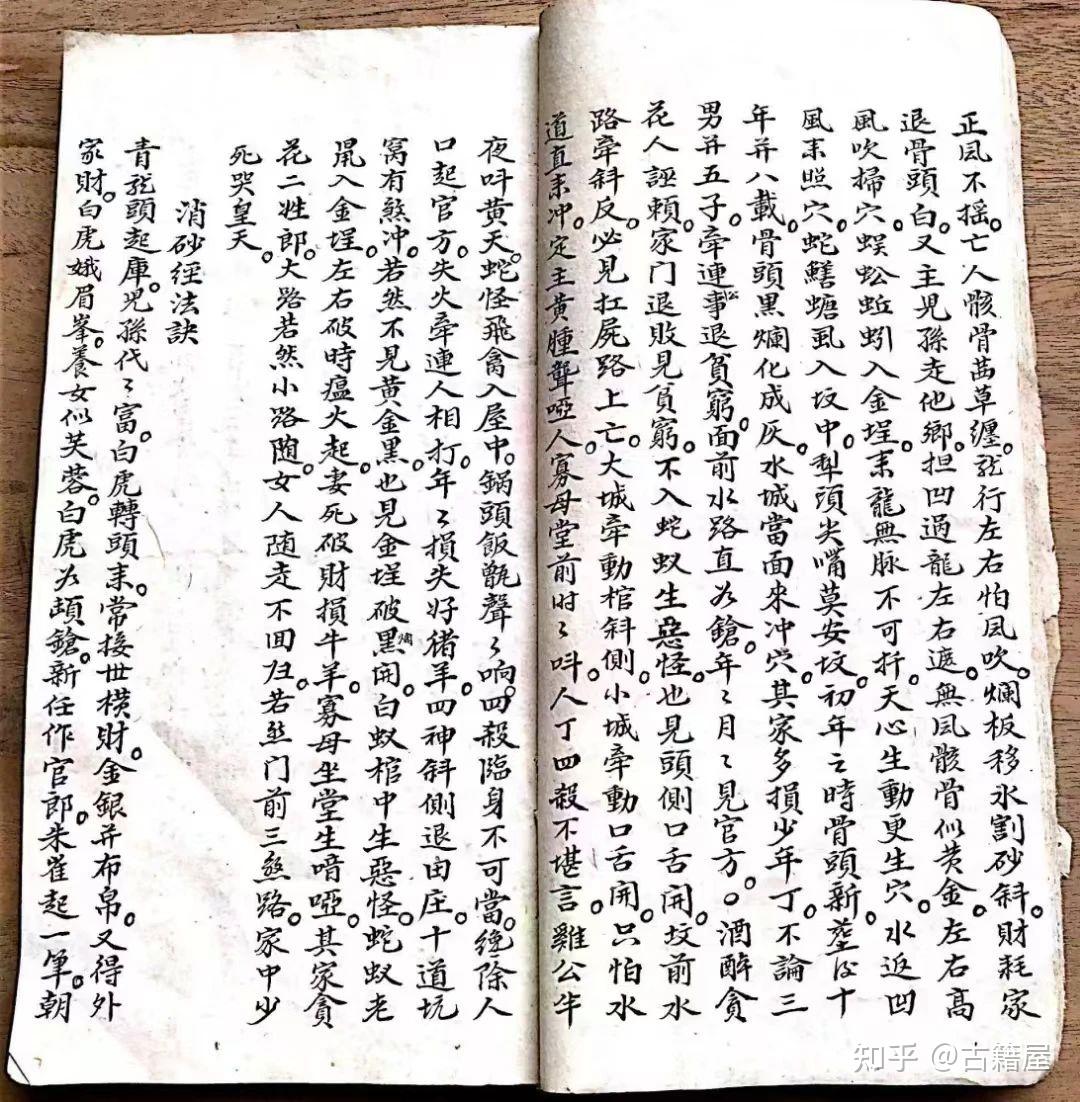 正風不搖。亡人骸骨茜草纏。龍行左右怕風吹。爛板移氷割砂斜。財耗家
退骨頭白。又主児孫走他鄉。担凹過龍左右遮。無風骸骨似黄金。左右高
風吹掃穴。蜈蚣蚯蚓入金埕。耒龍無脉不可扦。天心生動更生穴。水返凹
風耒照穴。蛇鱔蟾虱入坟中。犁頭尖嘴莫安坟。初年之時骨頭新。塟後十
年并八載。骨頭黒爛化成灰。水城當面來冲穴。其家多損少年丁。不論三
男并五子。牽連事公退貧窮。面前水路直为鎗。年々月々見官方。酒醉貪
花人誣頼。家门退敗見貧窮。不入蛇蚁生惡怪。也見頭側口舌開。坟前水
路牽斜反。必見扛屍路上亡。大城牽動棺斜側。小城牽動口舌開。只怕水
道直耒冲。定主黄腫聾啞人。寡母堂前时々呌。人丁四殺不堪言。雞公半
夜呌黄天。蛇怪飛禽入屋中。鍋頭飯甑聲々响。四殺臨身不可當。绝除人
口起官方。失火牽連人相打。年々損失好猪羊。四神斜側退田庄。十道坑
窩有煞冲。若然不見黄金黒。也見金埕破黒爛開。白蚁棺中生惡怪。蛇蚁老
鼠入金埕。左右破時瘟火起。妻死破財損牛羊。寡母坐堂生喑啞。其家貪
花二姓郎。大路若然小路随。女人随走不回归。若煞门前三煞路。家中少
死哭皇天。
消砂經法訣
青龍頭起庫。児孫代々富。白虎轉頭耒。常接世横財。金銀并布帛。又得外
家財。白虎娥眉峯。養女似芙蓉。白虎为頡鎗。新任作官郎。朱雀起一笔。朝
知乎 @古籍屋